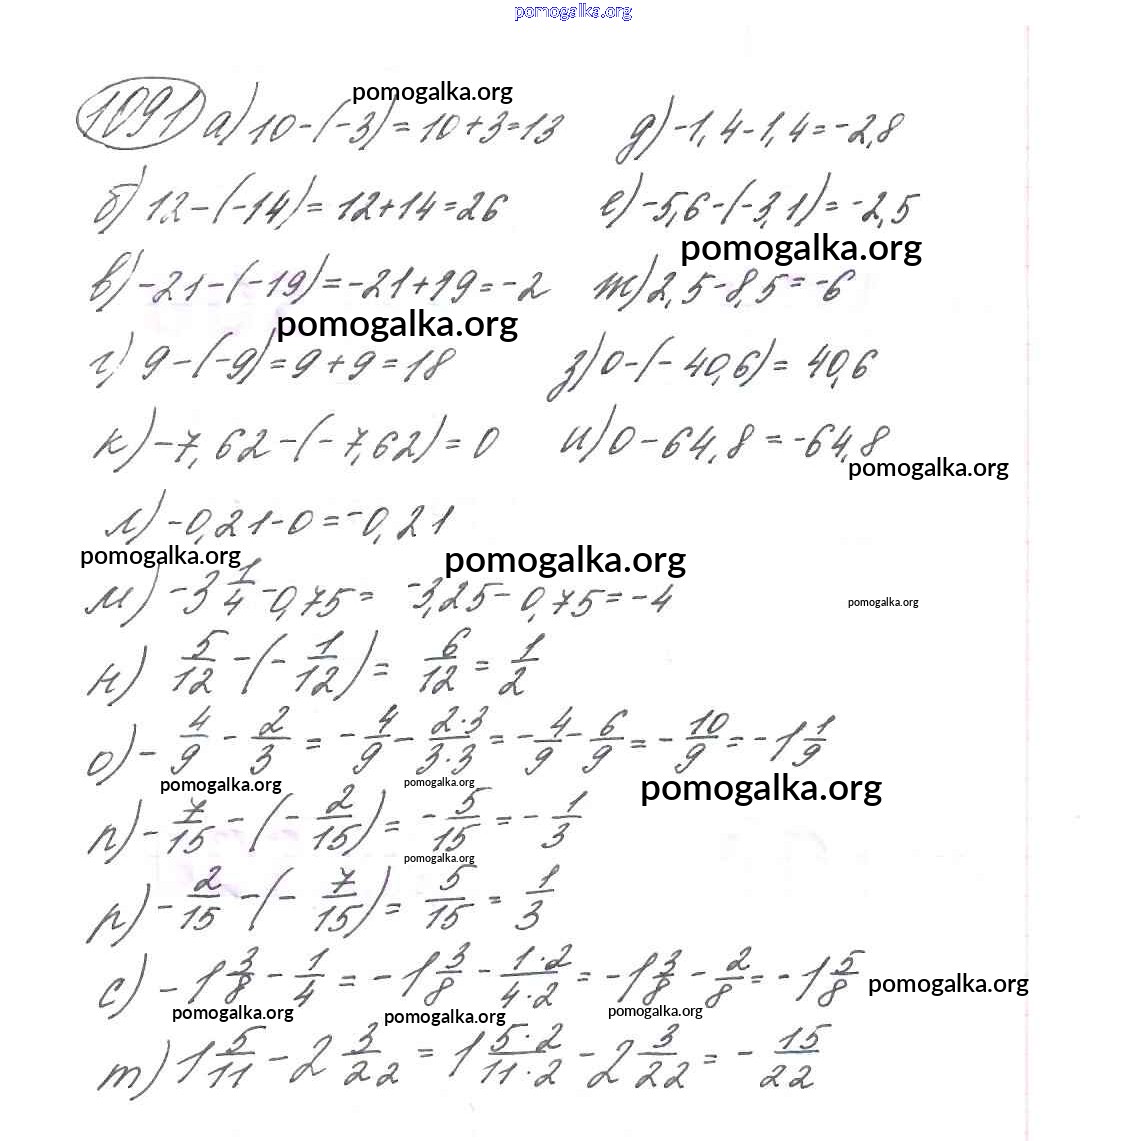 pomogalka.org
pomogalka.org
1091 а) 10-(-3)=10+3=13 д) -1,4-1,4=-2,8
б) 12-(-14)=12+14=26 е) -5,6-(-3,1)=-2,5
pomogalka.org
в) -21-(-19)=-21+19=-2 ж) 2,5-8,5=-6
pomogalka.org
г) 9-(-9)=9+9=18 з) 0-(-40,6)=40,6
к) -7,62-(-7,62)=0 и) 0-64,8=-64,8
pomogalka.org
л) -0,21-0=-0,21
pomogalka.org pomogalka.org
м) -3 1/4-0,75= -3,25-0,75=-4
pomogalka.org
н) 5/12-(-1/12)= 6/12=1/2
о) -4/9-2/3=-4/9-2·3/3·3=-4/9-6/9=-10/9=-1 1/9
pomogalka.org pomogalka.org pomogalka.org
п) -7/15-(-2/15)=-5/15=-1/3
pomogalka.org
р) -2/15-(-7/15)=5/15=1/3
с) -1 3/8-1/4=-1 3/8-1·2/4·2=-1 3/8-2/8=-1 5/8 pomogalka.org
pomogalka.org pomogalka.org pomogalka.org
т) 1 5/11-2 3/22=1 5·2/11·2-2 3/22=-15/22